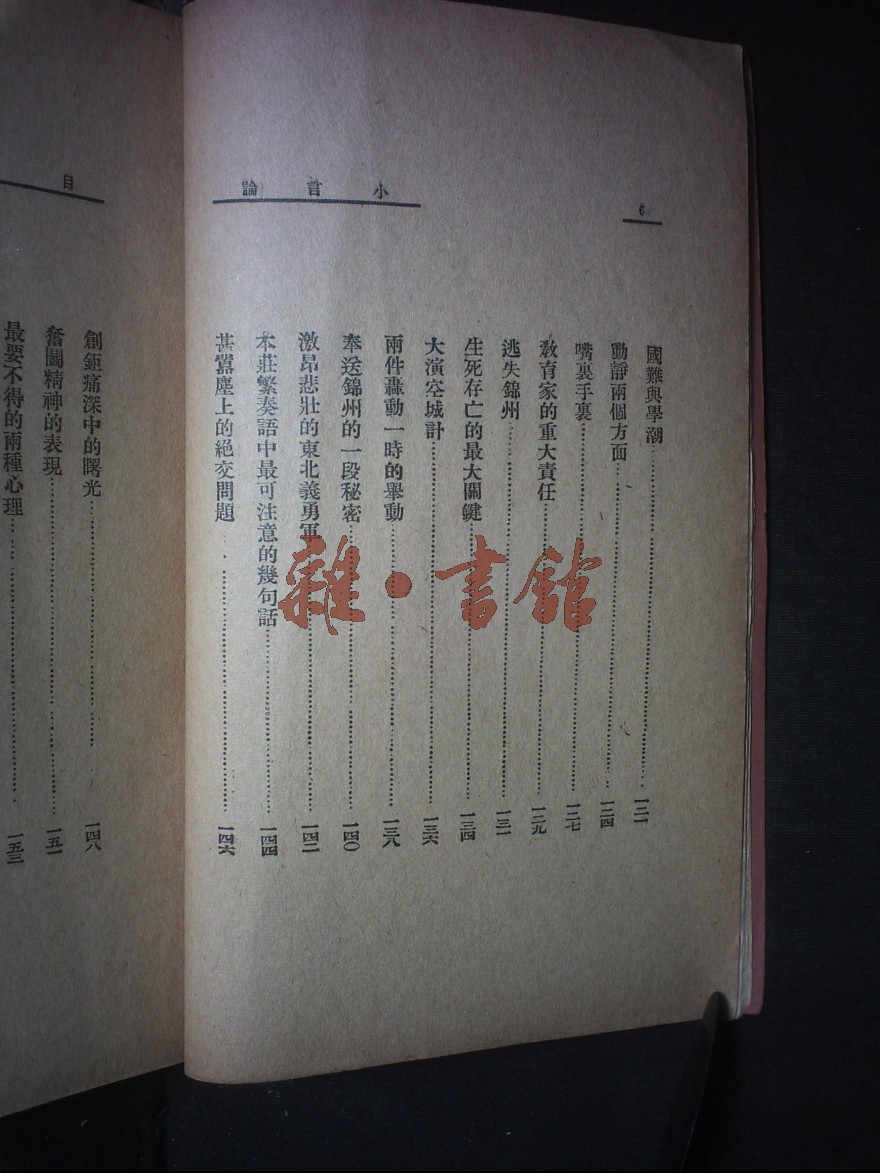 小言論
6
國難與學潮……一二一
動靜兩個方面……一二四
嘴裏手裏……一二七
教育家的重大責任……一二九
逃失錦州……一三一
生死存亡的最大關鍵……一三四
大演空城計……一三六
兩件轟動一時的舉動……一三八
奉送錦州的一段秘密……一四〇
激昂悲壯的東北義勇軍……一四二
本莊繁奏語中最可注意的幾句話……一四四
甚囂塵上的絕交問題……一四六
目
創鉅痛深中的曙光……一四八
奮鬭精神的表現……一五一
最要不得的兩種心理……一五三
雜·書館